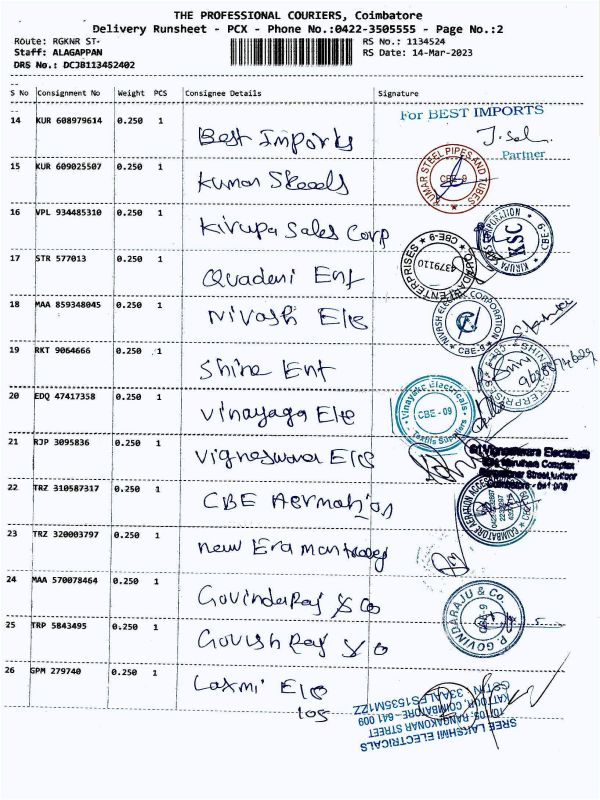 THE PROFESSIONAL COURIERS, Coimbatore
Delivery Runsheet - PCX - Phone No.:0422-3505555 - Page No.:2
Route: RGKNR ST-
RS No.: 1134524
Staff: ALAGAPPAN
RS Date: 14-Mar-2023
DRS No.: DCJB113452402
S No Consignment No Weight PCS Consignee Details Signature
14 KUR 608979614 0.250 1 Best Imports
For BEST IMPORTS
Partner
15 KUR 609025507 0.250 1 Kumar Steeels
KUMAR STEEL PIPES AND TUBES
CBE-9
16 VPL 934485310 0.250 1 Kirupa Sales Corp
KIRUPA SALES CORPORATION
KSC
CBE-9
17 STR 577013 0.250 1 Enf
ENTERPRISES
CBE-9
4379110
18 MAA 859348045 0.250 1 Nivash Ele
NIVASH ELECTRICAL CORPORATION
CBE-9
19 RKT 9064666 0.250 1 Shine Ent
SHINE ENTERPRISES
20 EDQ 47417358 0.250 1 Vinayaga Ele
Vinayaga Electricals
CBE - 09
Textile Suppliers
21 RJP 3095836 0.250 1 Vigneswara Ele
Sri Vigneshwara Electricals
Complex
22 TRZ 310587317 0.250 1 CBE
COIMBATORE AERATION ACCESSORIES
23 TRZ 320003797 0.250 1 New Era
24 MAA 570078464 0.250 1 Govindaraj & Co
P. GOVINDARAJU & Co.
CBE-9
25 TRP 5843495 0.250 1 & Co
26 GPM 279740 0.250 1 Laxmi Ele
105
SREE LAKSHMI ELECTRICALS
10/105, RANGAKONAR STREET
KATTOOR, COIMBATORE - 641 009
GSTIN
33AALFS1535M1ZZ